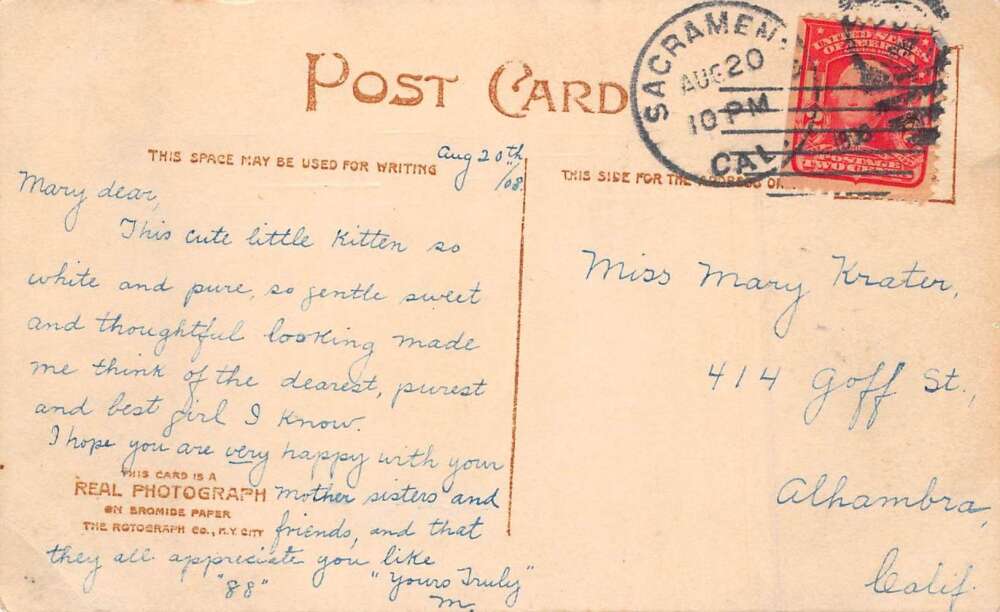 POST CARD
SACRAMEN
AUG 20
10 PM
CAL.
UNITED STATES
OF AMERICA
POSTAGE
TWO
THIS SPACE MAY BE USED FOR WRITING
THIS SIDE FOR THE ADDRESS
Aug 20th
/08.
Mary dear,
This cute little kitten so
white and pure, so gentle sweet
and thoughtful looking made
me think of the dearest, purest
and best girl I know.
I hope you are very happy with your
mother sisters and
friends, and that
they all appreciate you like
"88" "Yours Truly"
M.
THIS CARD IS A
REAL PHOTOGRAPH
ON BROMIDE PAPER
THE ROTOGRAPH CO., N.Y. CITY
Miss Mary Krater,
414 Goff St.,
Alhambra,
Calif.